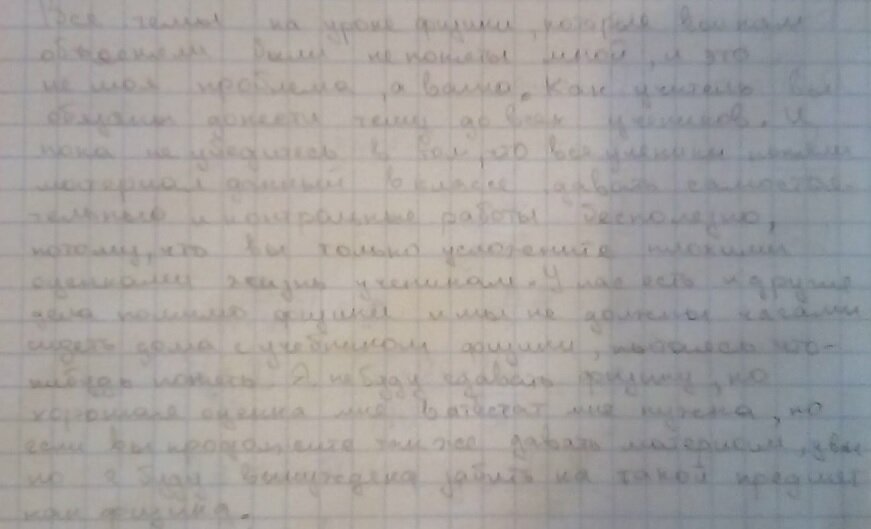 Все темы на уроке физики, которые вы нам
объясняли были не поняты мной, и это
не моя проблема, а ваша. Как учитель вы
обязаны донести тему до всех учеников. И
пока не убедитесь в том, что все ученики поняли
материал данный в классе давать самостоя-
тельные и контрольные работы бесполезно,
потому, что вы только усложните плохими
оценками жизнь ученикам. У нас есть и другие
дела помимо физики и мы не должны часами
сидеть дома с учебником физики, пытаясь что-
нибудь понять. Я не буду сдавать физику, но
хорошая оценка мне в атестат мне нужна, но
если вы продолжите так же давать материал, увы
но я буду вынуждена забить на такой предмет
как физика.